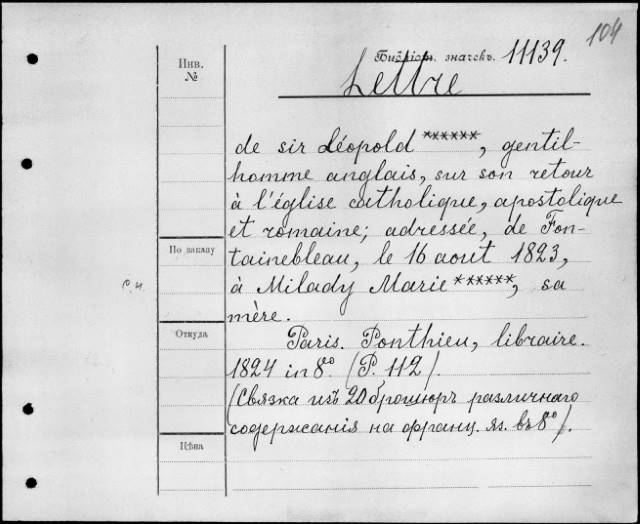 104
Библіот. значекъ. 11139.
Инв.
№
Lettre
de sir Léopold ******, gentil-
homme anglais, sur son retour
à l'église catholique, apostolique
et romaine; adressée, de Fon-
По заказу
tainebleau, le 16 août 1823,
à Milady Marie ******, sa
mère.
Откуда
Paris. Ponthieu, libraire.
1824 in 8º. (P. 112).
(Связка изъ 20 брошюръ различнаго
содержанія на франц. яз. въ 8º).
Цѣна